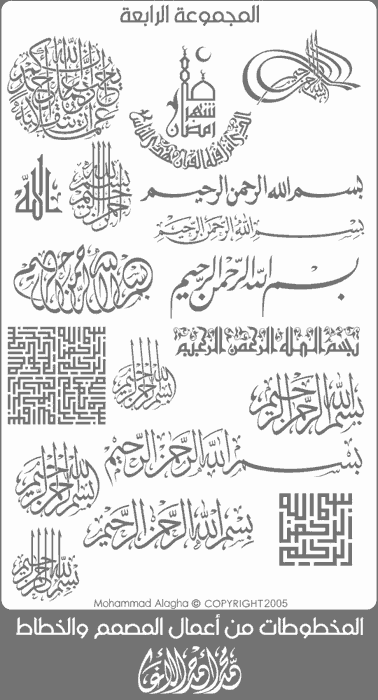 المجموعة الرابعة
شهر رمضان
الذي أنزل فيه القرآن هدى للناس
الله
بسم الله الرحمن الرحيم
بسم الله الرحمن الرحيم
بسم الله الرحمن الرحيم
بسم الله الرحمن الرحيم
بسم الله الرحمن الرحيم
بسم الله الرحمن الرحيم
بسم الله الرحمن الرحيم
بسم الله الرحمن الرحيم
بسم الله الرحمن الرحيم
بسم الله الرحمن الرحيم
بسم الله الرحمن الرحيم
بسم الله الرحمن الرحيم
بسم الله الرحمن الرحيم
Mohammad Alagha © COPYRIGHT2005
المخطوطات من أعمال المصمم والخطاط
محمد أحمد الأغا